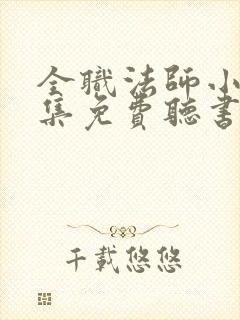 全職法師小
集免費聽書
千載悠悠